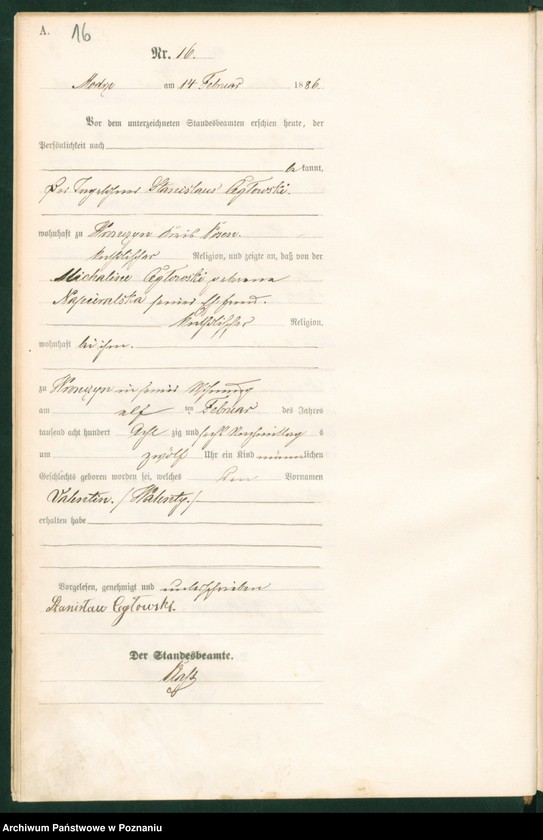 A. 16
Nr. 16.
am 14 Februar 1886.
Vor dem unterzeichneten Standesbeamten erschien heute, der
Persönlichkeit nach
be kannt,
der Tagelöhner Stanislaus Cegłowski.
wohnhaft zu Kreis Posen.
katholischer Religion, und zeigte an, daß von der
Michaline Cegłowski geborene
Napieralska seiner Ehefrau.
katholischer Religion,
wohnhaft bei ihm.
zu in seiner Wohnung
am elf ten Februar des Jahres
tausend acht hundert acht zig und sechs Nachmittags
um zwölf Uhr ein Kind männlichen
Geschlechts geboren worden sei, welches den Vornamen
Valentin. /Walenty./
erhalten habe
Vorgelesen, genehmigt und unterschrieben
Stanisław Cegłowski.
Der Standesbeamte.
Archiwum Państwowe w Poznaniu